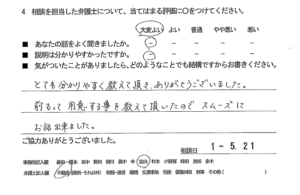 4 相談を担当した弁護士について、当てはまる評価に○をつけてください。
大変よい よい 普通 やや悪い 悪い
■ あなたの話をよく聞きましたか。
■ 説明は分かりやすかったですか。
■ 気がついたことがありましたら、どのようなことでも結構ですからお書きください。
とても分かりやすく教えて頂き、ありがとうございました。
前もって用意する事を教えて頂いたのでスムーズに
お話出来ました。
ご協力ありがとうございました。
相談日 1-5.21
事務所記入欄
弁護士記入欄